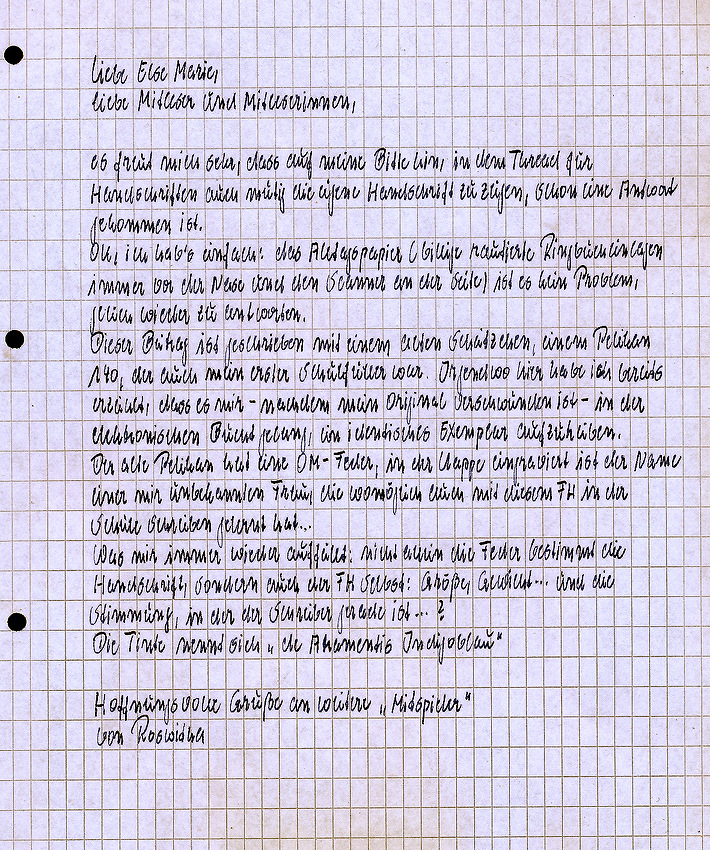 Liebe Else Marie,
liebe Mitleser und Mitleserinnen,
es freut mich sehr, dass auf meine Bitte hin, in dem Thread für
Handschriften auch mutig die eigene Handschrift zu zeigen, schon eine Antwort
gekommen ist.
OK, ich hab's einfach: das Alltagspapier (billige karierte Ringbucheinlagen
immer vor der Nase und den Scanner an der Seite) ist es kein Problem,
gleich wieder zu antworten.
Dieser Beitrag ist geschrieben mit einem alten Schätzchen, einem Pelikan
140, der auch mein erster Schulfüller war. Irgendwo hier habe ich bereits
erzählt, dass es mir - nachdem mein Original verschwunden ist - in der
elektronischen Bucht gelang, ein identisches Exemplar aufzutreiben.
Der alte Pelikan hat eine OM-Feder, in der Kappe eingraviert ist der Name
einer mir unbekannten Frau, die womöglich auch mit diesem FH in der
Schule Schreiben gelernt hat...
Was mir immer wieder auffällt: nicht allein die Feder bestimmt die
Handschrift, sondern auch der FH selbst: Größe, Gewicht... und die
Stimmung, in der der Schreiber gerade ist...?
Die Tinte nennt sich „de Atramentis Indigoblau"
Hoffnungsvolle Grüße an weitere „Mitspieler"
von Roswitha